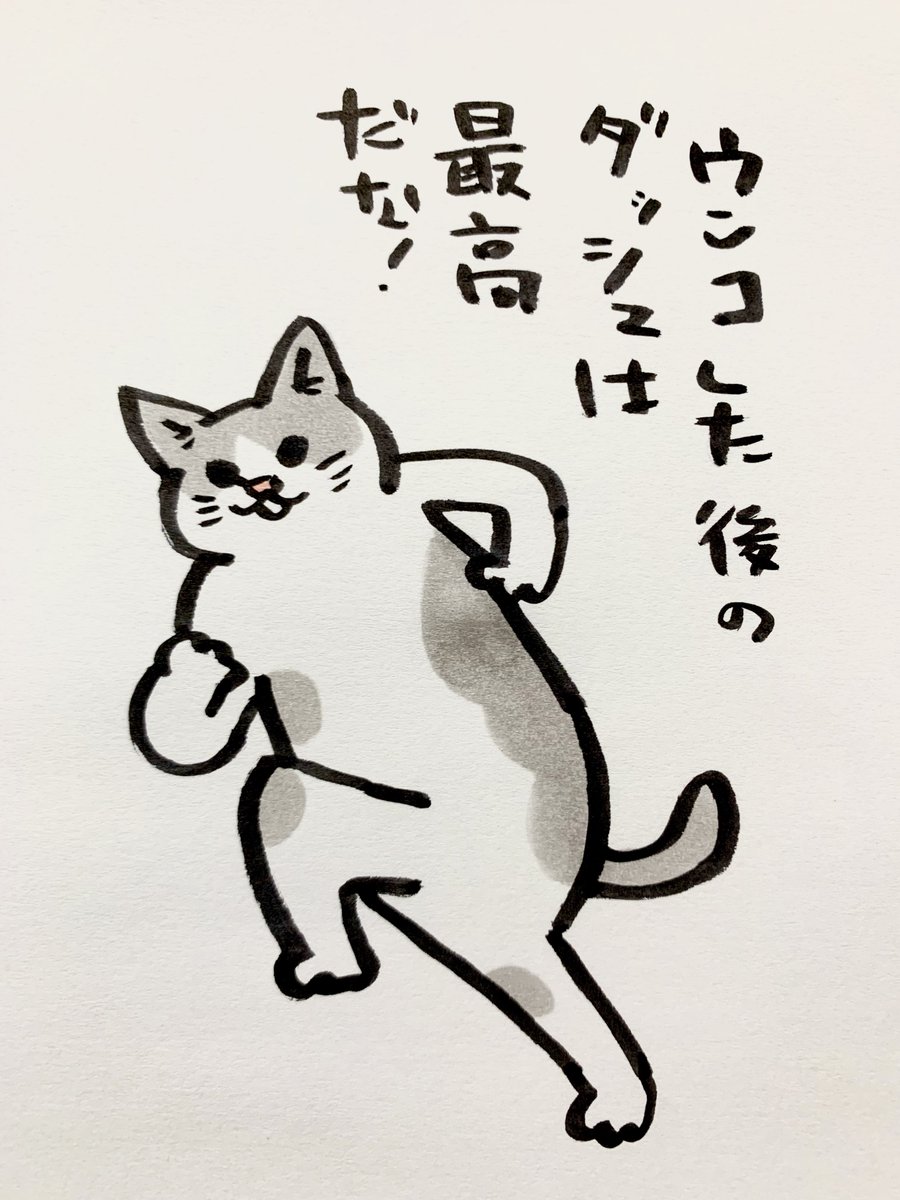 ウンコした後の
ダッシュは
最高
だな!